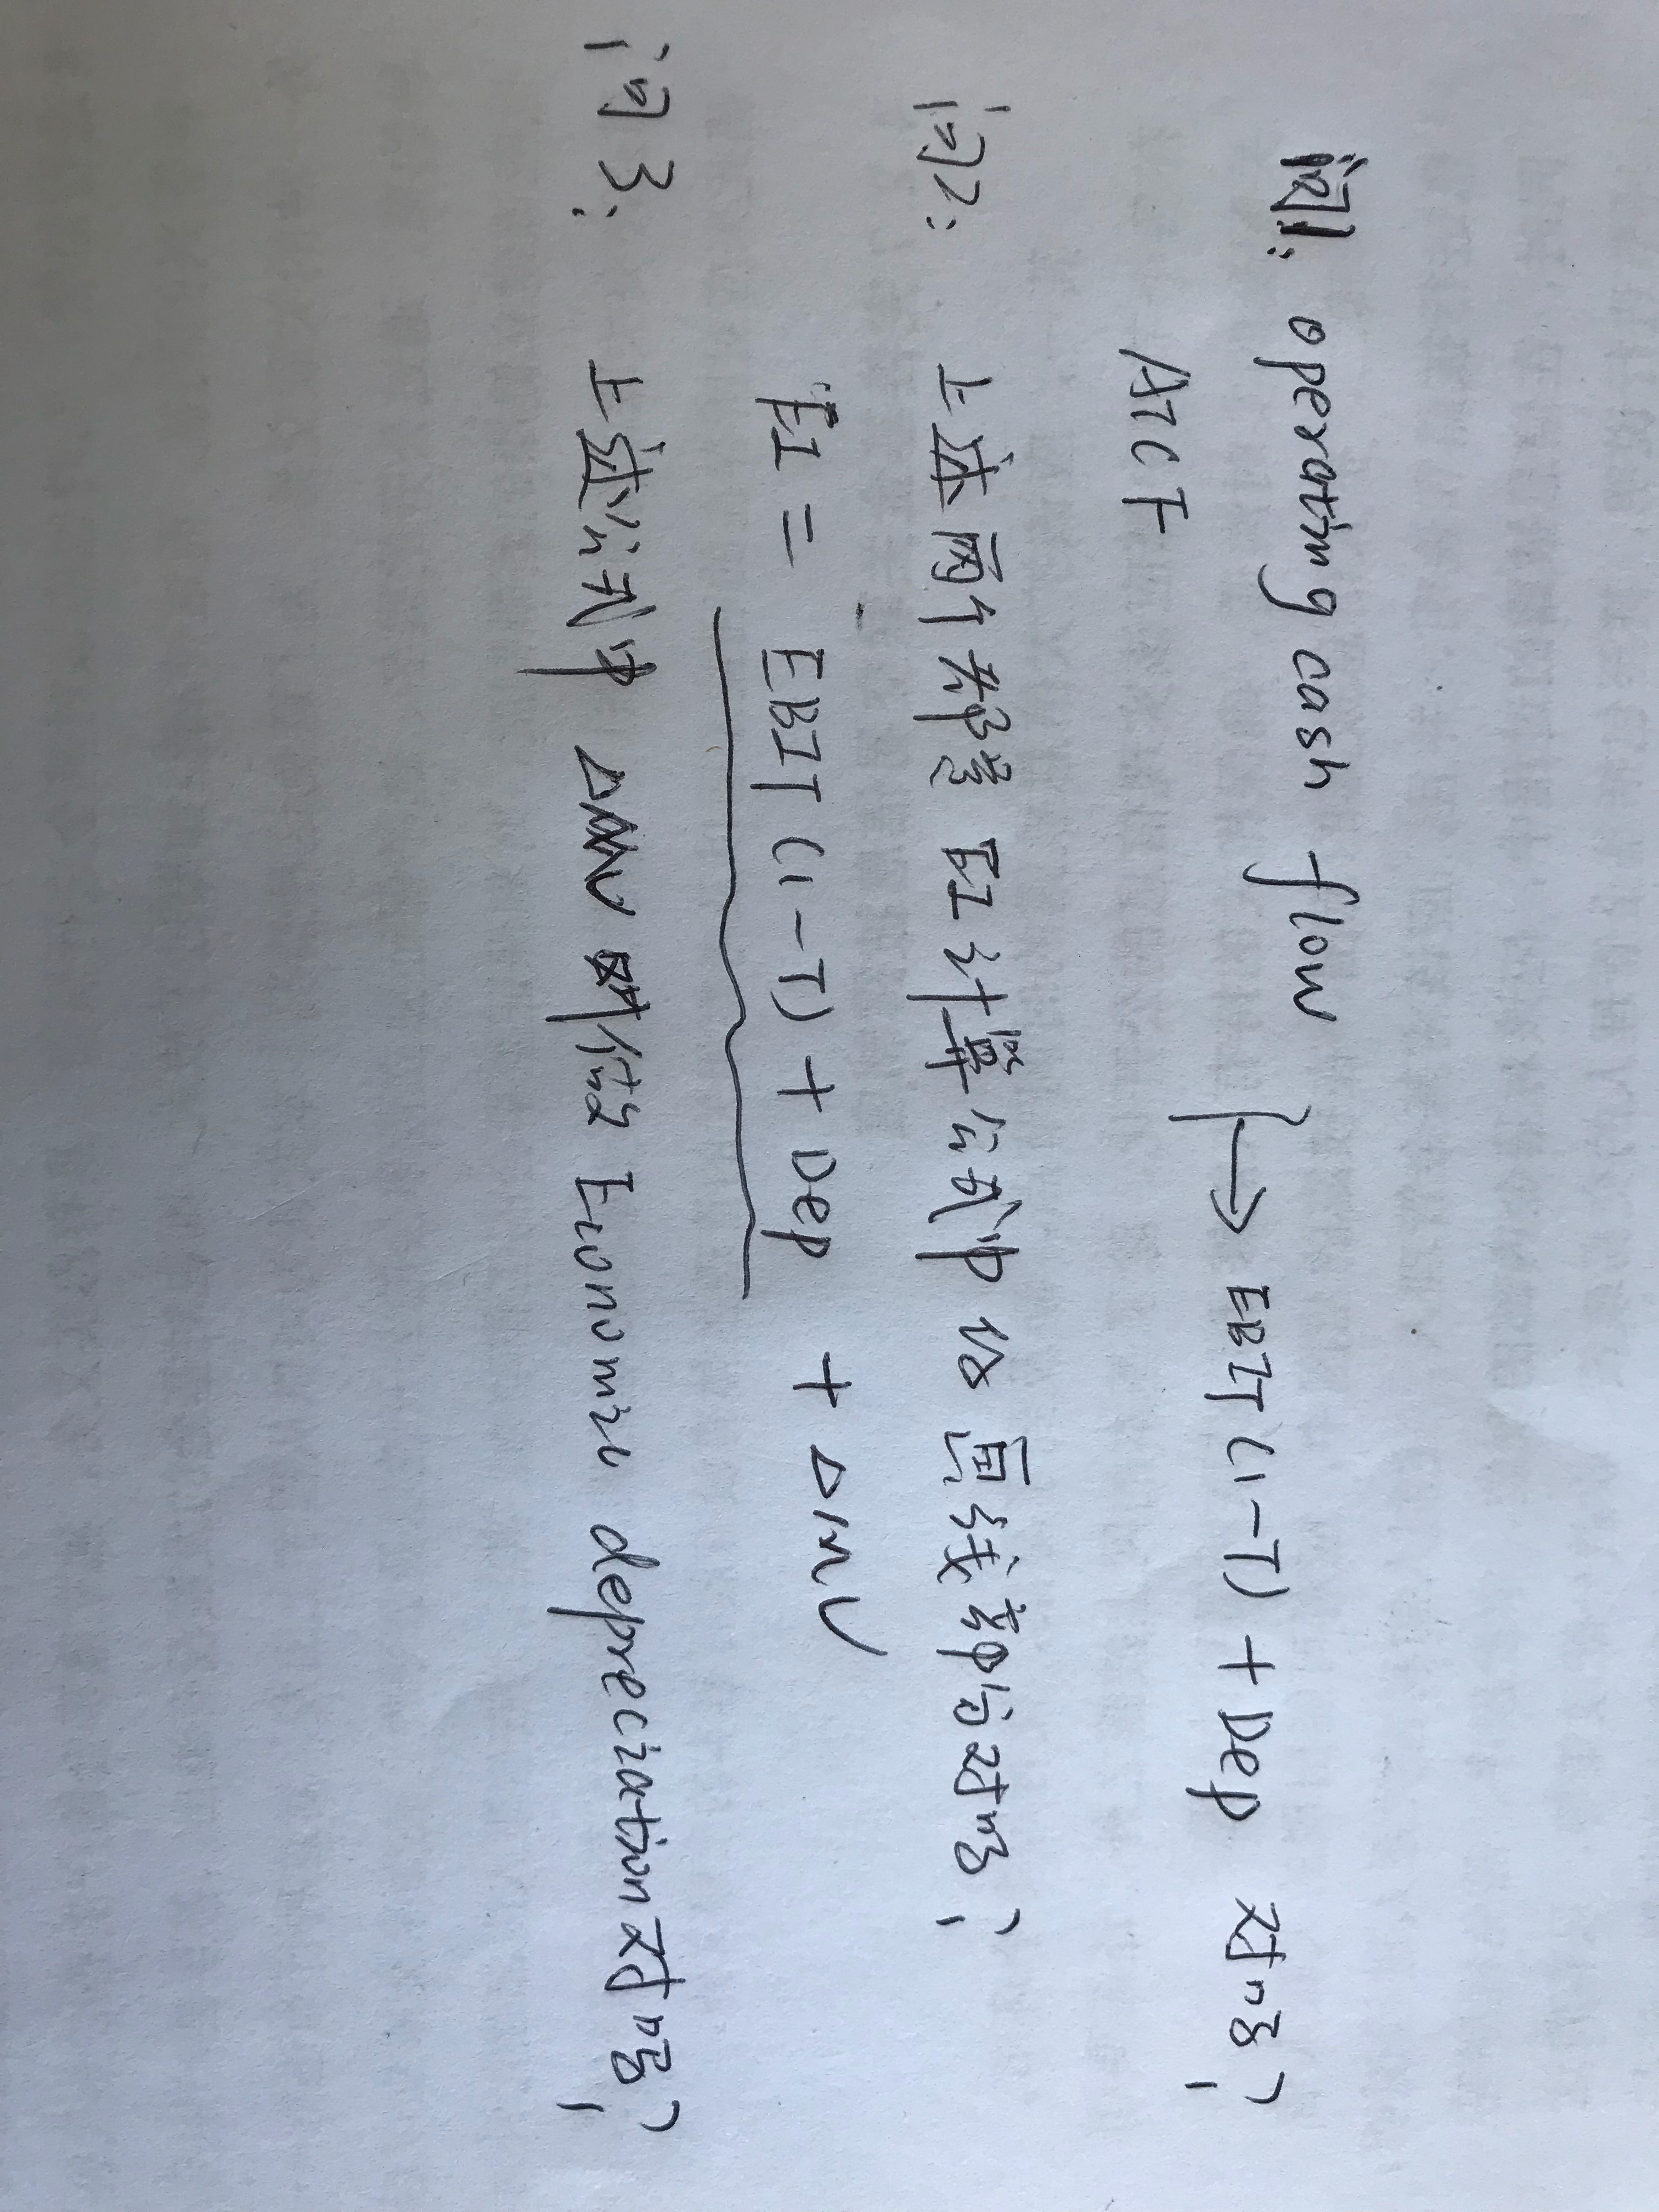 问1: operating cash flow
ATCF
→ EBIT(1-T) + Dep 对吗?
问2: 上述两个都是 EI 计算公式中的画线部分对吗?
EI = EBIT(1-T) + Dep + ΔMV
问3: 上述公式中 ΔMV 叫做 Economic depreciation 对吗?